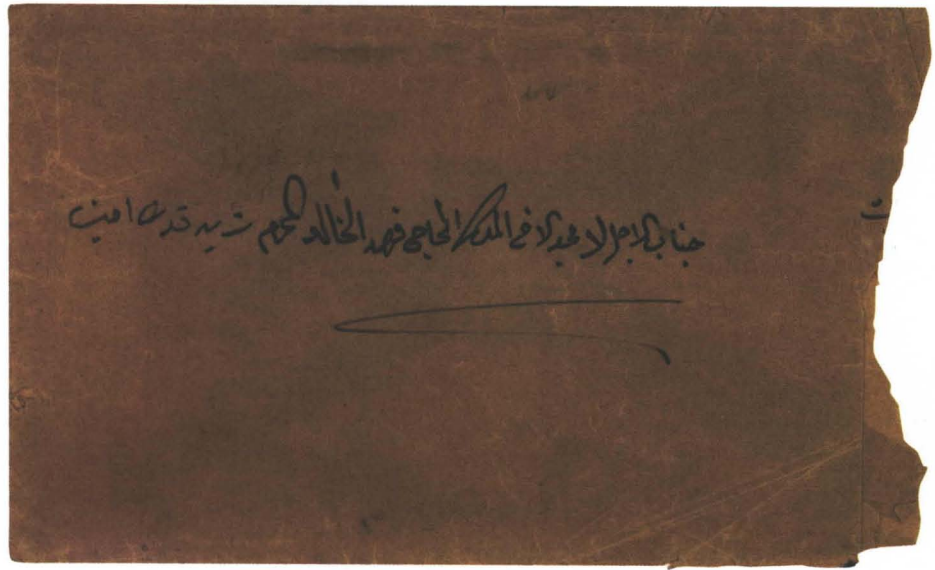 جناب الاجل الامجد الافخم المكرم الحاجي فهد الخالد المحترم زيد قدره امين